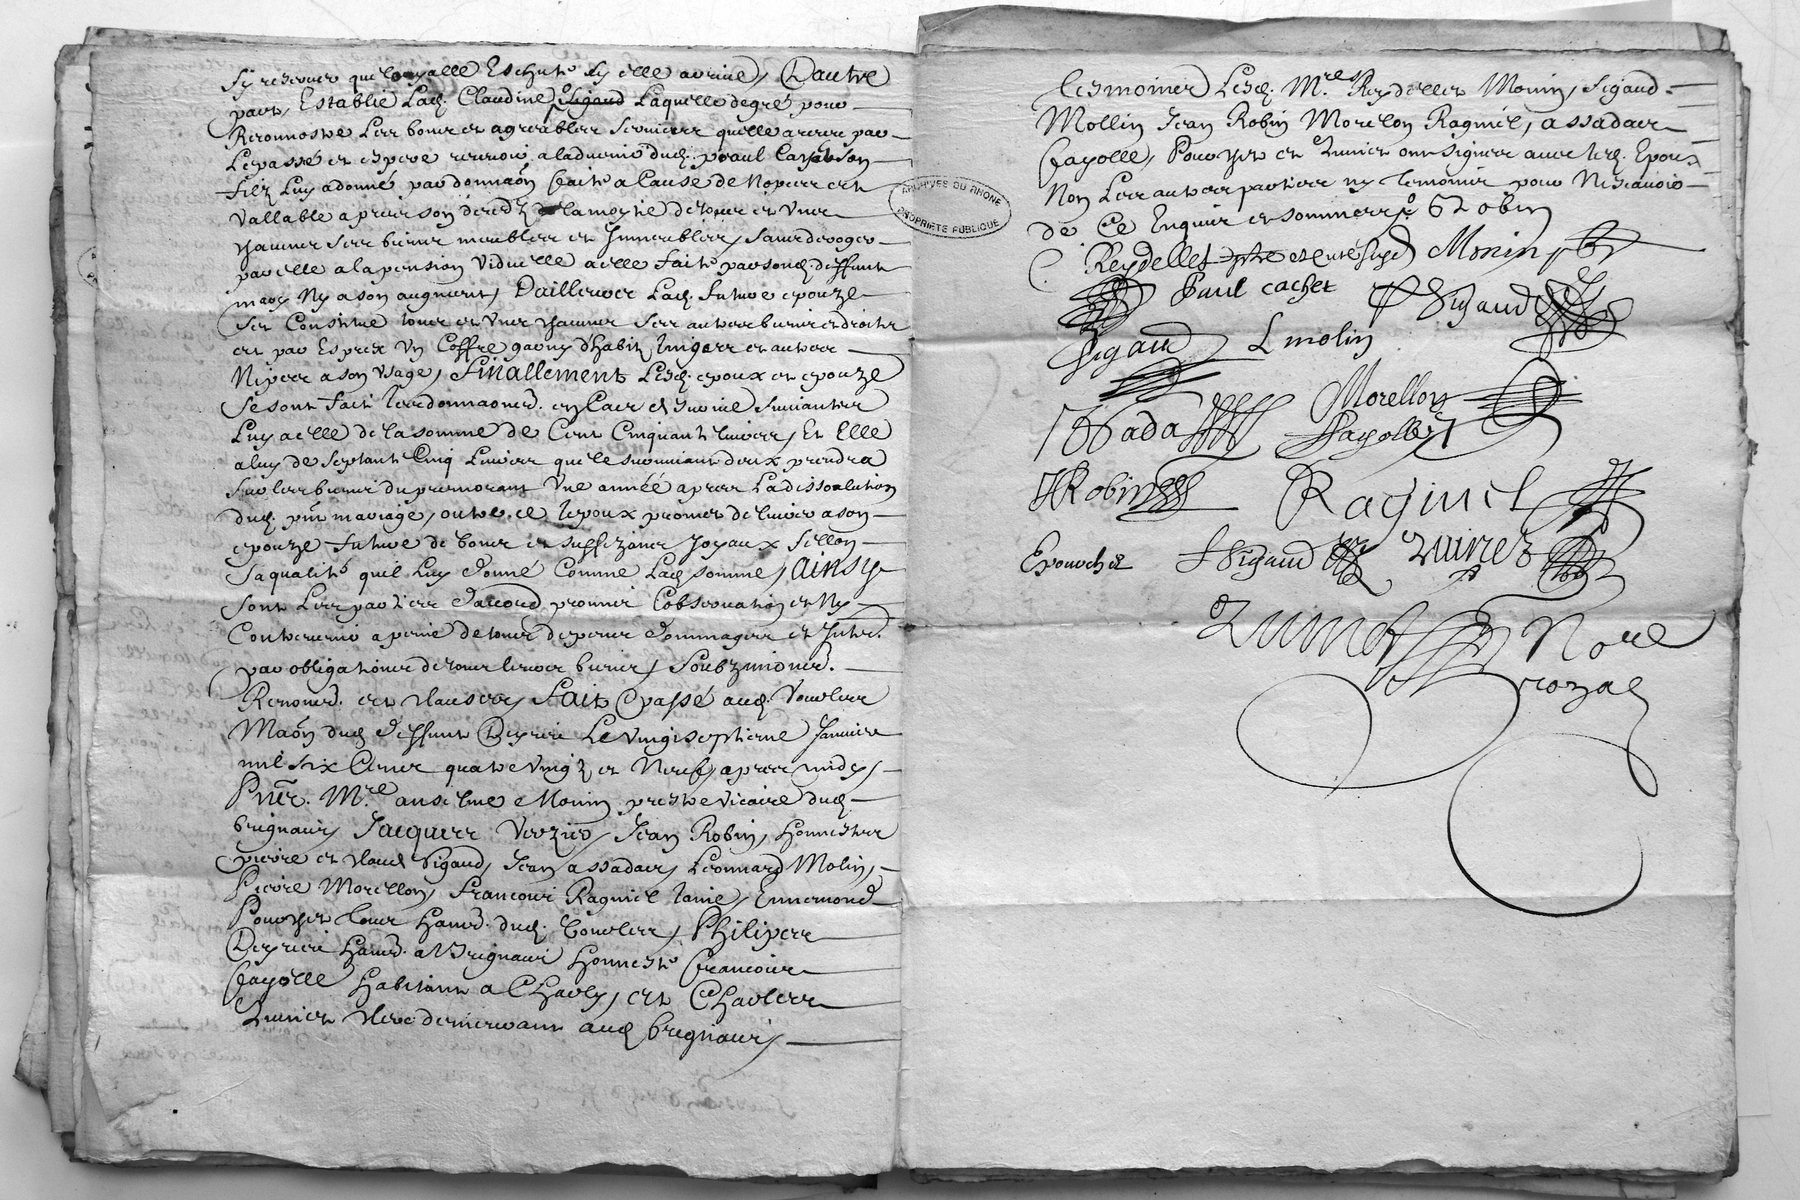 sy reserver que loyalle Escheute sy elle arrive, D'autre
part, Establie Lad. Claudine Sigaud Laquelle degré pour
Reconnostre Les bons et agreables services quelle a receu par
Le passé et espere recevoir a ladvenir dud. paul Cachet son
filz Luy a donné par donnaon faite a Cause de Nopces et
Vallable apres son decedz de la moytié de tous et Uns
chacuns ses biens meubles et Immeubles, sans deroger
par elle a la pension Viduelle a elle faite par sond. deffunt
mary Ny a son augment, D'ailleurs Lad. future epouze
se Constitue tous et Uns chacuns ses autres biens et droits
et par Exprex Un Coffre garny d'habitz linges et autres
Nipes a son Usage, Finallement Lesd. epoux et epouze
se sont fait les donnaons en Cas de survie suivantes
Luy a elle de la somme de Cent Cinquante livres, Et Elle
a luy de septante Cinq Livres que le survivant deux prendra
sur les biens du premorant Une année apres La dissolution
dud. pnt mariage, outre ce lepoux promet de livrer a son
epouze future de bons et suffizans Joyaux sellon
sa qualité quil Luy donne Comme Lad. somme, ainsy
sont Les parties d'accord promis l'observation et Ny
Contrevenir a peine de tous despens dommages et Intrs.
par obligations de tous leurs biens, Soubzmions.
Renons. et clauses, Fait et passé aud. Vourles
Maon dud. deffunt Deyrieu Le Vingt septieme Janvier
mil six Cens quatre Vingtz et Neuf, apres midy,
Pnts. Mre anselme Monin prestre Vicaire dud.
brignais, Jacques Vrozier, Jean Robin, Honnestes
pierre et Claude Sigaud, Jean assadas, Leonnard Molin,
Pierre Morellon, Francois Ragniel laine, Ennemond
Pourchet tous Habts. dud. Vourles, Philipes
Deyrieu Habt. a Brignais Honneste Francois
Fayolle habitant a Charly, et Charles
Zuinet Clerc demeurant aud. brignais,
tesmoins Lesd. Mres Reydellet Monin, Sigaud
Mollin Jean Robin Morelon Ragniel, assadas
Fayolle, Pourchet et Zuinet ont signes avec lesd. Epoux
Non Les autres parties ny tesmoins pour Ne scavoir
de Ce Enquis et sommes,
Reydellet ptre et curé Monin
Paul cachet Sigaud
Sigaud L molin
Morellon
Assada Fayolle
J Robin Ragniel
E pourchet Sigaud Zuinet
Zuinet Nore
royal
ARCHIVES DU RHONE
PROPRIETE PUBLIQUE